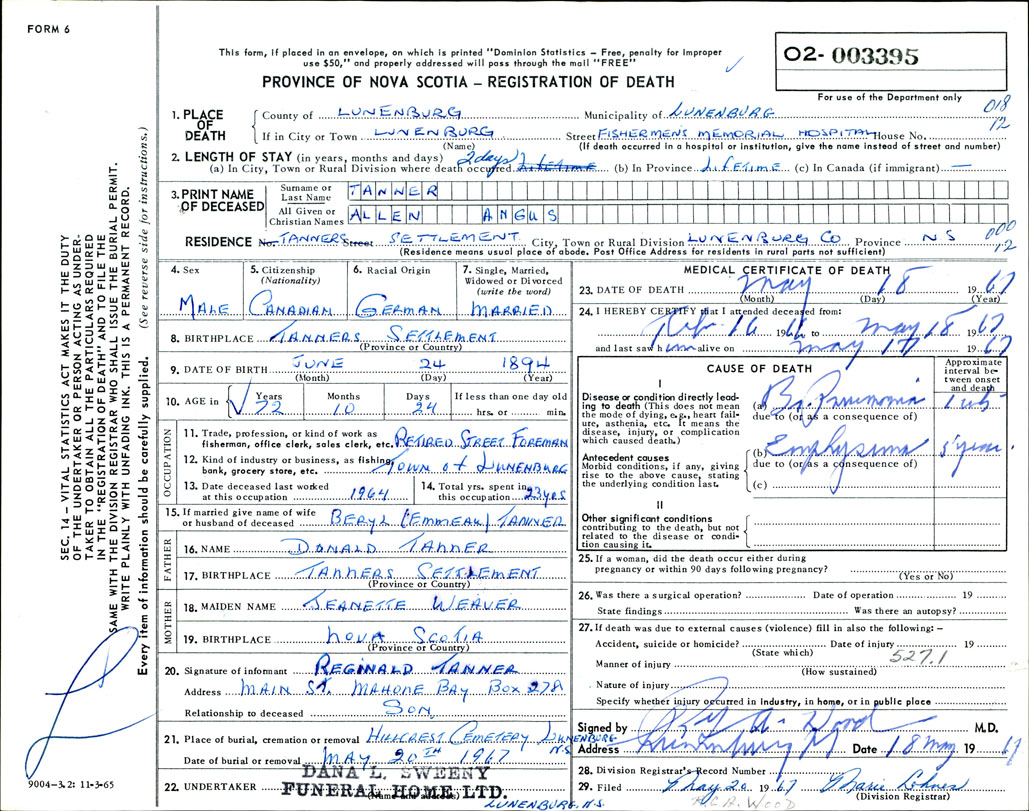 FORM 6
This form, if placed in an envelope, on which is printed "Dominion Statistics – Free, penalty for improper
use $50," and properly addressed will pass through the mail "FREE"
PROVINCE OF NOVA SCOTIA – REGISTRATION OF DEATH
02- 003395
For use of the Department only
018
12
1. PLACE OF DEATH
County of LUNENBURG Municipality of LUNENBURG
If in City or Town LUNENBURG Street FISHERMENS MEMORIAL HOSPITAL House No.
(Name) (If death occurred in a hospital or institution, give the name instead of street and number)
2. LENGTH OF STAY (in years, months and days)
(a) In City, Town or Rural Division where death occurred 2 days LIFETIME (b) In Province LIFETIME (c) In Canada (if immigrant) —
3. PRINT NAME OF DECEASED
Surname or Last Name TANNER
All Given or Christian Names ALLEN ANGUS
RESIDENCE No. TANNERS Street SETTLEMENT City, Town or Rural Division LUNENBURG CO Province NS
000
12
(Residence means usual place of abode. Post Office Address for residents in rural parts not sufficient)
4. Sex MALE
5. Citizenship (Nationality) CANADIAN
6. Racial Origin GERMAN
7. Single, Married, Widowed or Divorced (write the word) MARRIED
8. BIRTHPLACE TANNERS SETTLEMENT
(Province or Country)
9. DATE OF BIRTH JUNE 24 1894
(Month) (Day) (Year)
10. AGE in Years 72 Months 10 Days 24 If less than one day old hrs. or min.
OCCUPATION
11. Trade, profession, or kind of work as fisherman, office clerk, sales clerk, etc. RETIRED STREET FOREMAN
12. Kind of industry or business, as fishing, bank, grocery store, etc. TOWN of LUNENBURG
13. Date deceased last worked at this occupation 1964
14. Total yrs. spent in this occupation 23 yrs
15. If married give name of wife or husband of deceased BERYL (EMMEAK) TANNER
FATHER
16. NAME DONALD TANNER
17. BIRTHPLACE TANNERS SETTLEMENT
(Province or Country)
MOTHER
18. MAIDEN NAME JEANETTE WEAVER
19. BIRTHPLACE NOVA SCOTIA
(Province or Country)
20. Signature of informant REGINALD TANNER
Address MAIN ST. MAHONE BAY BOX 278
Relationship to deceased SON
21. Place of burial, cremation or removal HILLCREST CEMETERY LUNENBURG N.S.
Date of burial or removal MAY 20TH 1967
22. UNDERTAKER DANA L. SWEENY
FUNERAL HOME LTD.
(Name and address)
LUNENBURG, N.S.
MEDICAL CERTIFICATE OF DEATH
23. DATE OF DEATH May 18 1967
(Month) (Day) (Year)
24. I HEREBY CERTIFY that I attended deceased from:
Apr. 16 1966 to May 18 1967
and last saw him alive on May 17 1967
CAUSE OF DEATH
Approximate interval between onset and death
I
Disease or condition directly leading to death (This does not mean the mode of dying, e.g., heart failure, asthenia, etc. It means the disease, injury, or complication which caused death.)
(a) Br. Pneumonia
due to (or as a consequence of)
Antecedent causes
Morbid conditions, if any, giving rise to the above cause, stating the underlying condition last.
(b) Emphysema 5 years
due to (or as a consequence of)
(c)
II
Other significant conditions
contributing to the death, but not related to the disease or condition causing it.
25. If a woman, did the death occur either during
pregnancy or within 90 days following pregnancy?
(Yes or No)
26. Was there a surgical operation? Date of operation 19
State findings Was there an autopsy?
27. If death was due to external causes (violence) fill in also the following: –
Accident, suicide or homicide? Date of injury 19
(State which)
527.1
Manner of injury
(How sustained)
Nature of injury
Specify whether injury occurred in industry, in home, or in public place
Signed by A. Wood M.D.
Address Lunenburg NS Date 18 May 1967
28. Division Registrar's Record Number
29. Filed May 20 1967 Marie Lohnes
(Division Registrar)
A. WOOD
SEC. 14 – VITAL STATISTICS ACT MAKES IT THE DUTY
OF THE UNDERTAKER OR PERSON ACTING AS UNDER-
TAKER TO OBTAIN ALL THE PARTICULARS REQUIRED
IN THE "REGISTRATION OF DEATH" AND TO FILE THE
SAME WITH THE DIVISION REGISTRAR WHO SHALL ISSUE THE BURIAL PERMIT.
WRITE PLAINLY WITH UNFADING INK. THIS IS A PERMANENT RECORD.
Every item of information should be carefully supplied. (See reverse side for instructions.)
9004–3.2: 11-3-65